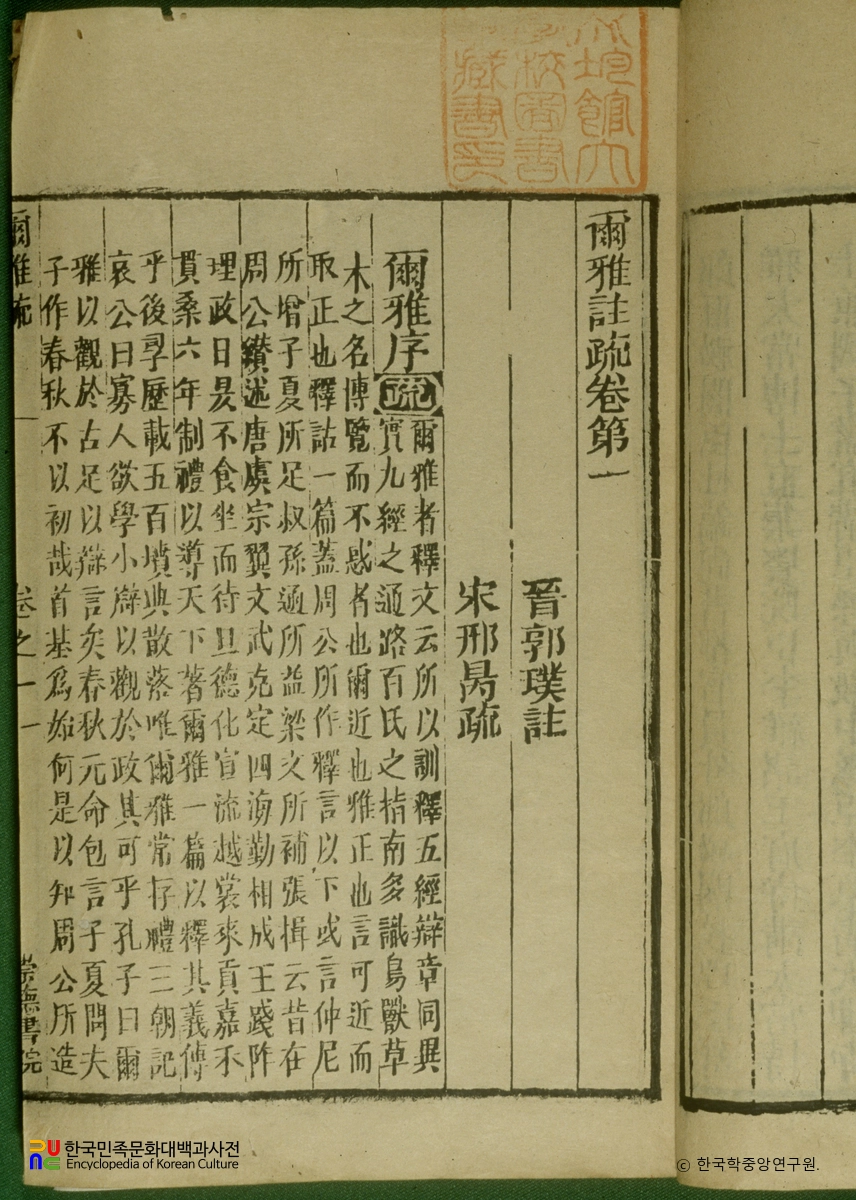 均館大
校圖書
藏書印
爾雅註疏卷第一
晉郭璞註
宋邢昺疏
爾雅序 疏 爾雅者釋文云所以訓釋五經辯章同異
實九經之通路百氏之指南多識鳥獸草
木之名博覽而不惑者也爾近也雅正也言可近而
取正也釋詁一篇蓋周公所作釋言以下或言仲尼
所增子夏所足叔孫通所益梁文所補張揖云昔在
周公纘述唐虞宗翼文武克定四海勤相成王踐阼
理政日昃不食坐而待旦德化宣流越裳來貢嘉禾
貫桑六年制禮以導天下著爾雅一篇以釋其義傳
乎後歷載五百墳典散落唯爾雅常存禮三朝記
哀公曰寡人欲學小辯以觀於政其可乎孔子曰爾
雅以觀於古足以辯言矣春秋元命包言子夏問夫
子作春秋不以初哉首基爲始何是以知周公所造
爾雅疏 卷之一 一 崇德書院
한국민족문화대백과사전
Encyclopedia of Korean Culture
© 한국학중앙연구원.